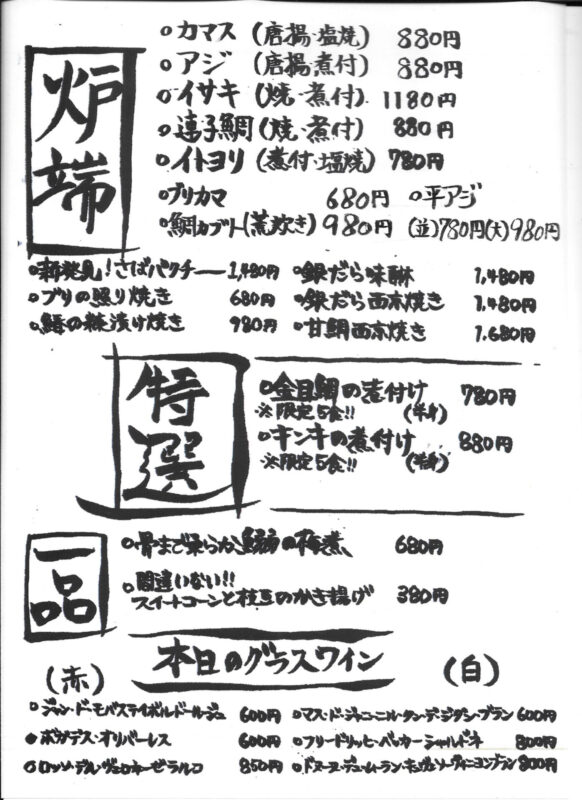 炉端
○カマス(唐揚・塩焼) 880円
○アジ(唐揚・煮付) 880円
○イサキ(焼・煮付) 1180円
○連子鯛(焼・煮付) 880円
○イトヨリ(煮付・塩焼) 780円
○ブリカマ 680円 ○平アジ
○鯛カブト(荒炊き) 980円 (並)780円(大)980円
○新発見!さばパクチー 1,480円 ○銀だら味醂 1,480円
○ブリの照り焼き 680円 ○銀だら西京焼き 1,480円
○鰆の糠漬け焼き 980円 ○甘鯛西京焼き 1,680円
特選
○金目鯛の煮付け 780円
※限定5食!! (半身)
○キンキの煮付け 880円
※限定5食!! (半身)
一品
○骨まで柔らか鰯の梅煮 680円
○間違いない!!
スイートコーンと枝豆のかき揚げ 380円
本日のグラスワイン
(赤) (白)
○ジャン・ド・モバステイボルドールージュ 600円 ○マス・ド・ジャニーニル・タン・デ・ジタン・ブラン 600円
○ボガデス・オリバーレス 600円 ○フリードリッヒ・ベッカーシャルドネ 800円
○ロッソ・デル・ヴェロネーゼラルコ 850円 800円